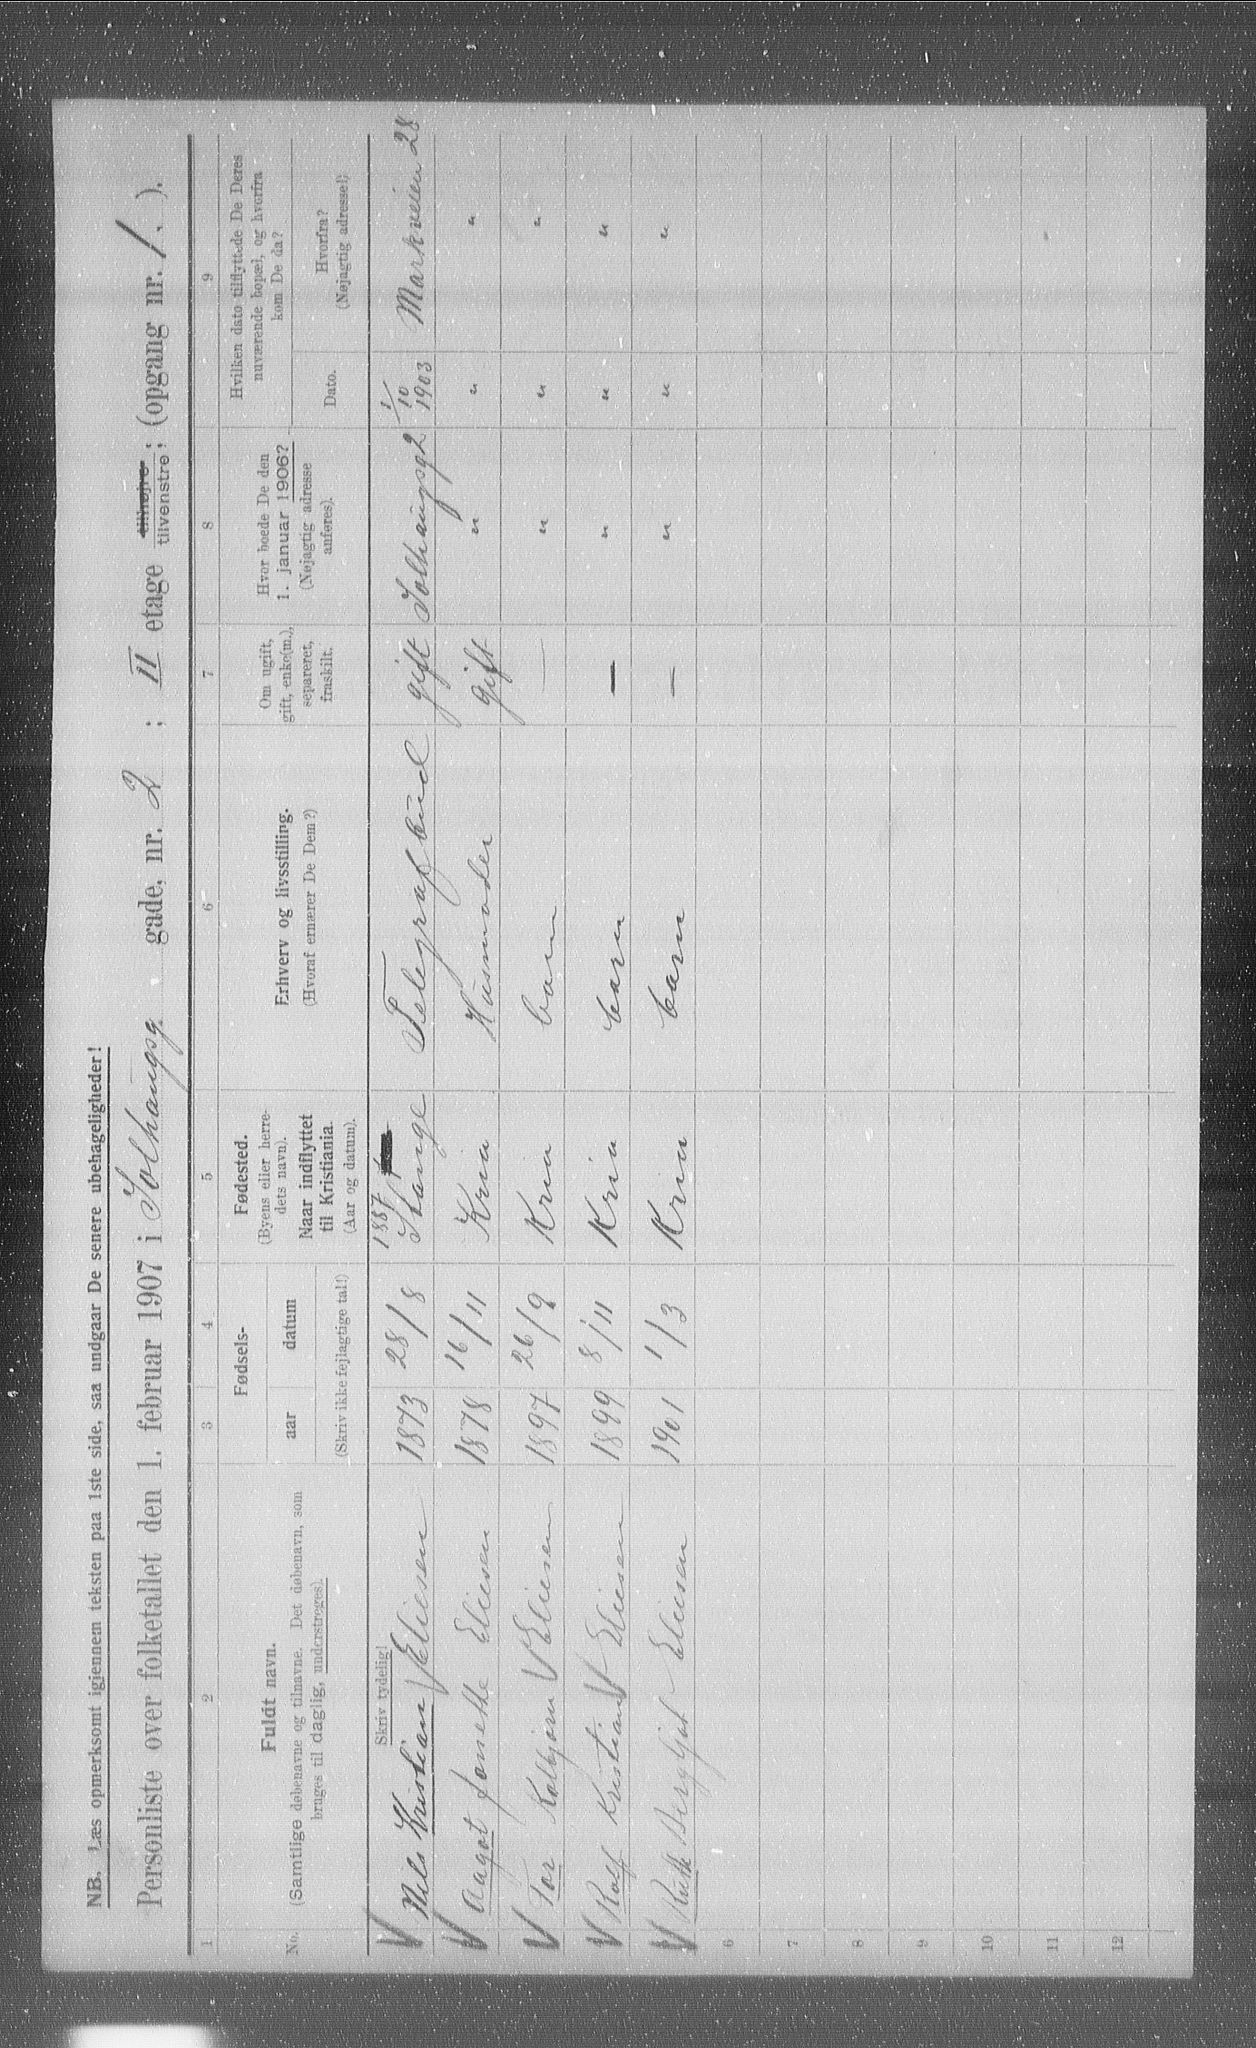 NB. Læs opmerksomt igjennem teksten paa 1ste side, saa undgaar De senere ubehageligheder!
Personliste over folketallet den 1. februar 1907 i Solhaugsg. gade, nr. 2 ; II etage tilhøjre tilvenstre ; (opgang nr. 1. ).
1 2 3 4 5 6 7 8 9
No.
Fuldt navn.
(Samtlige døbenavne og tilnavne. Det døbenavn, som
bruges til daglig, understreges).
Fødsels-
aar datum
(Skriv ikke fejlagtige tal!)
Fødested.
(Byens eller herre-
dets navn).
Naar indflyttet
til Kristiania.
(Aar og datum).
Erhverv og livsstilling.
(Hvoraf ernærer De Dem?)
Om ugift,
gift, enke(m.),
separeret,
fraskilt.
Hvor boede De den
1. januar 1906?
(Nøjagtig adresse
anføres).
Hvilken dato tilflyttede De Deres
nuværende bopæl, og hvorfra
kom De da?
Dato.
Hvorfra?
(Nøjagtig adresse!)
Skriv tydelig!
1887 1/10
Nels Kristian Eliesen 1873 28/8 Stange Telegrafbud gift Solhaugsg 2 1903 Markveien 28
Aagot Jonette Eliesen 1878 16/11 Kria Husmoder gift " " "
Tor Kolbjørn Eliesen 1897 26/9 Kria barn — " " "
Ralf Kristian Eliesen 1899 8/11 Kria barn — " " "
Ruth Bergljot Eliesen 1901 1/3 Kria barn — " " "
6
7
8
9
10
11
12